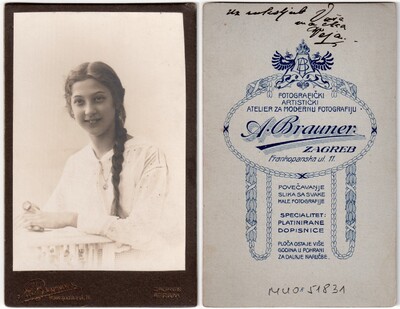 A. Brauner
Frankopanska ul. 11.
Vaša
FOTOGRAFIČKI
ARTISTIČKI
ATELIER ZA MODERNU FOTOGRAFIJU
A. Brauner
ZAGREB
Frankopanska ul. 11.
POVEČAVANJE
SLIKA SA SVAKE
MALE FOTOGRAFIJE
SPECIALITET:
PLATINIRANE
DOPISNICE
PLOČA OSTAJE VIŠE
GODINA U POHRANI
ZA DALNJE NARUČBE.
MUO 51831